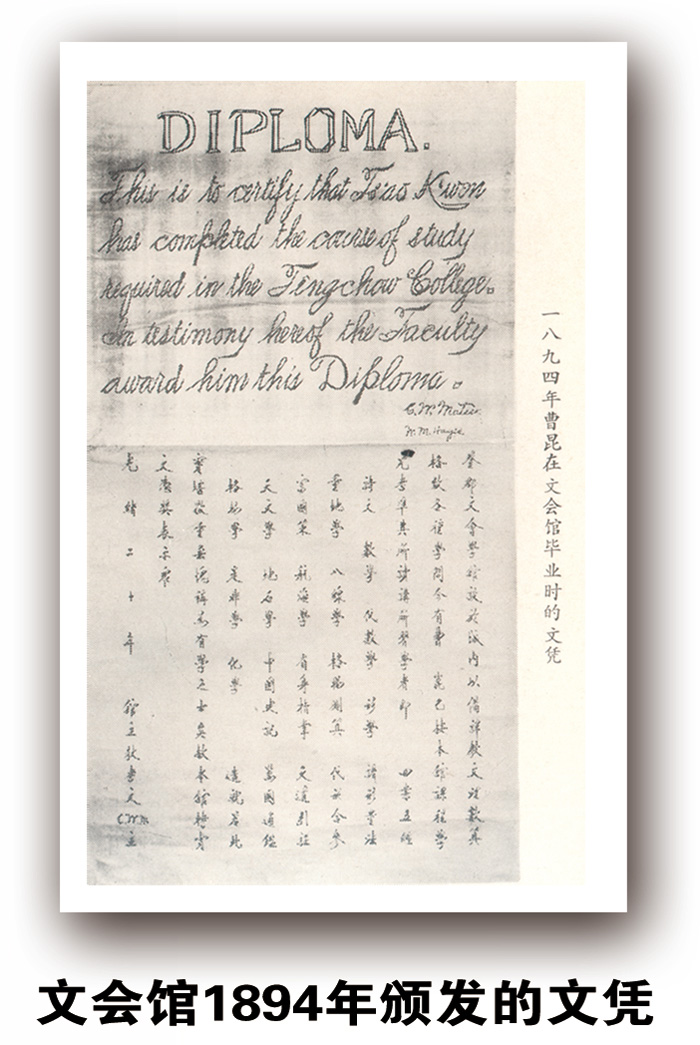 DIPLOMA.
This is to certify that Tsao Kwon
has completed the course of study
required in the Tengchow College.
In testimony hereof the Faculty
award him this Diploma.
C. W. Mateer
W. M. Hayes
登郡文會學館設於城內以備詳教天球數算
格致各種學問今有曹 崑已按本館課程學
完考準其所讀講所習學者即 四書五經
詩文 數學 代數學 形學 諸形量法
重地學 八線學 格物測算 代形合參
富國策 航海學 省身指掌 天道引証
天文學 地石學 中國史記 萬國通鑑
格物學 是非學 化學 造就若此
實堪嘉重無愧稱為有學之士矣故本館特寄
文憑奬表示眾
光緒二十年 館主狄考文 C.W.M. 立
一八九四年曹昆在文会馆毕业时的文凭
文会馆1894年颁发的文凭